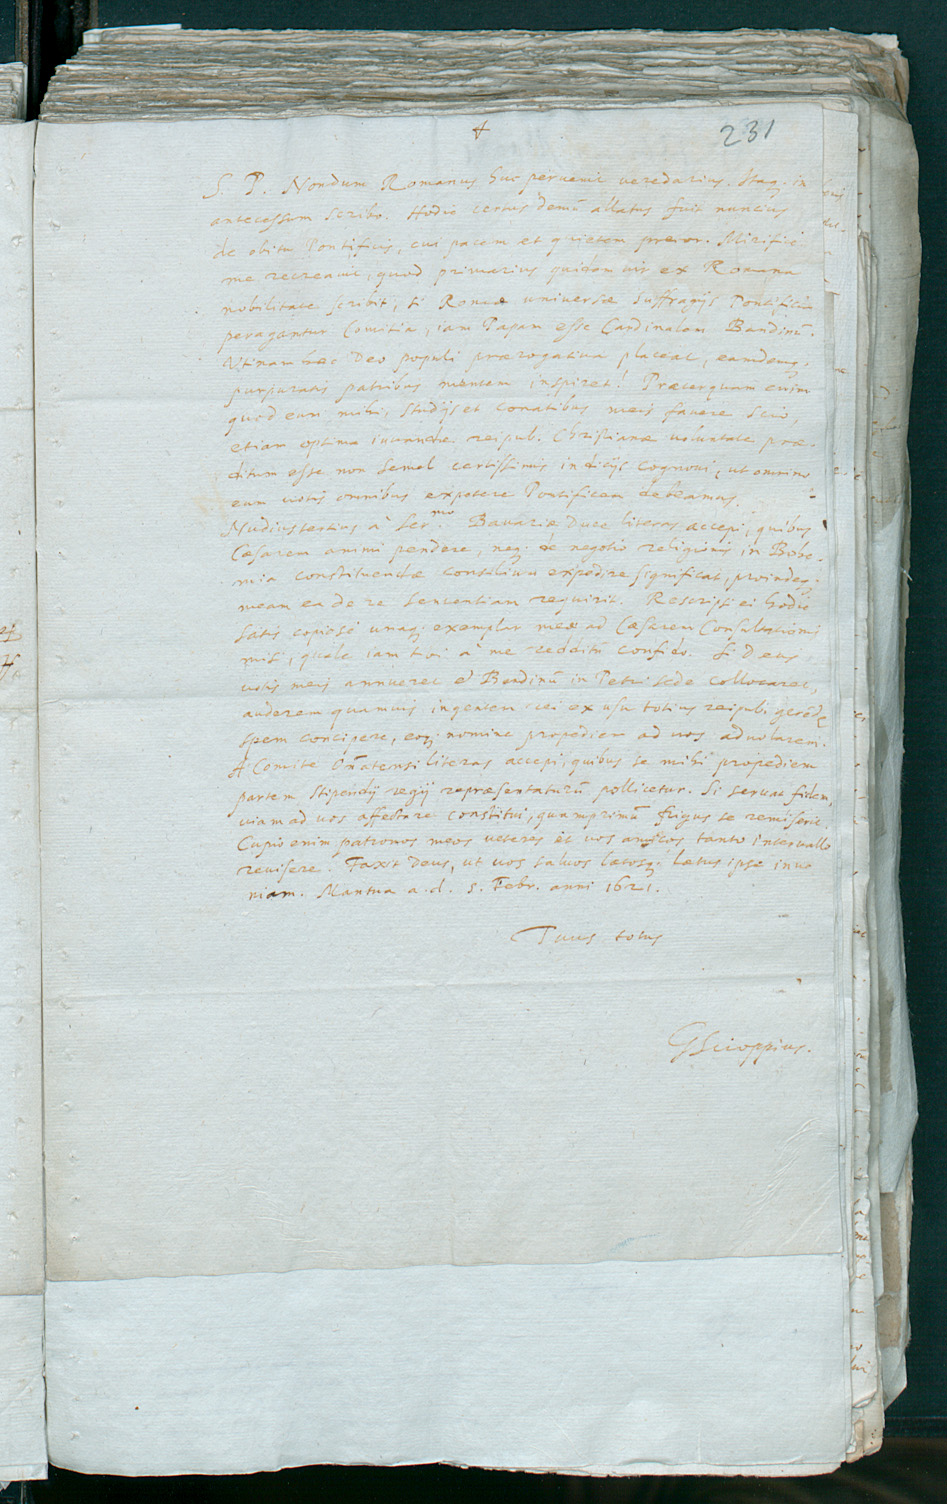 231
S. P. Nondum Romanus huc pervenit veredarius. Itaq. in
antecessum scribo. Hodie certus demũ allatus fuit nuncius
de obitu Pontificis, cui pacem et quietem precor. Mirificè
me recreavit, quod primarius quidam vir ex Romana
nobilitate scribit, si Romæ universæ suffragijs Pontificia
peragantur Comitia, iam Papam esse Cardinalem Bandinũ.
Utinam hæc Deo populi prærogativa placeat, eamdemq.
purpuratis patribus mentem inspiret! Præterquam enim
quod eum mihi, studijs et conatibus meis favere scio,
etiam optima iuvandæ reipub. Christianæ voluntate præ-
ditum esse non semel certissimis indicijs cognovi, ut omnino
eum votis omnibus expetere Pontificem debeamus.
Nudiustertius à Ser.mo Bavariæ Duce literas accepi, quibus
Cæsarem animi pendere, neq. de negotio religionis in Bohe-
mia constituendæ consilium expedire significat, proindeq.
meam ea de re sententiam requirit. Rescripsi ei hodie
satis copiosè unaq. exemplar meæ ad Cæsarem Consultationis
misi, quale iam tibi à me redditũ confido. Si Deus
votis meis annueret et Bandinũ in Petri sede collocaret,
auderem quamvis ingentem rei ex usu totius reipub. gerẽdæ
spem concipere, eoq. nomine propediem ad vos advolarem.
A Comite Oñatensi literas accepi, quibus se mihi propediem
partem stipendij regij repræsentaturũ pollicetur. Si servat fidem,
viam ad vos affectare constitui, quamprimũ frigus se remiserit.
Cupio enim patronos meos veteres et vos amicos tanto intervallo
revisere. Faxit Deus, ut vos salvos lætosq. lætus ipse inve
niam. Mantua a. d. 5. Febr. anni 1621.
Tuus totus
GScioppius.